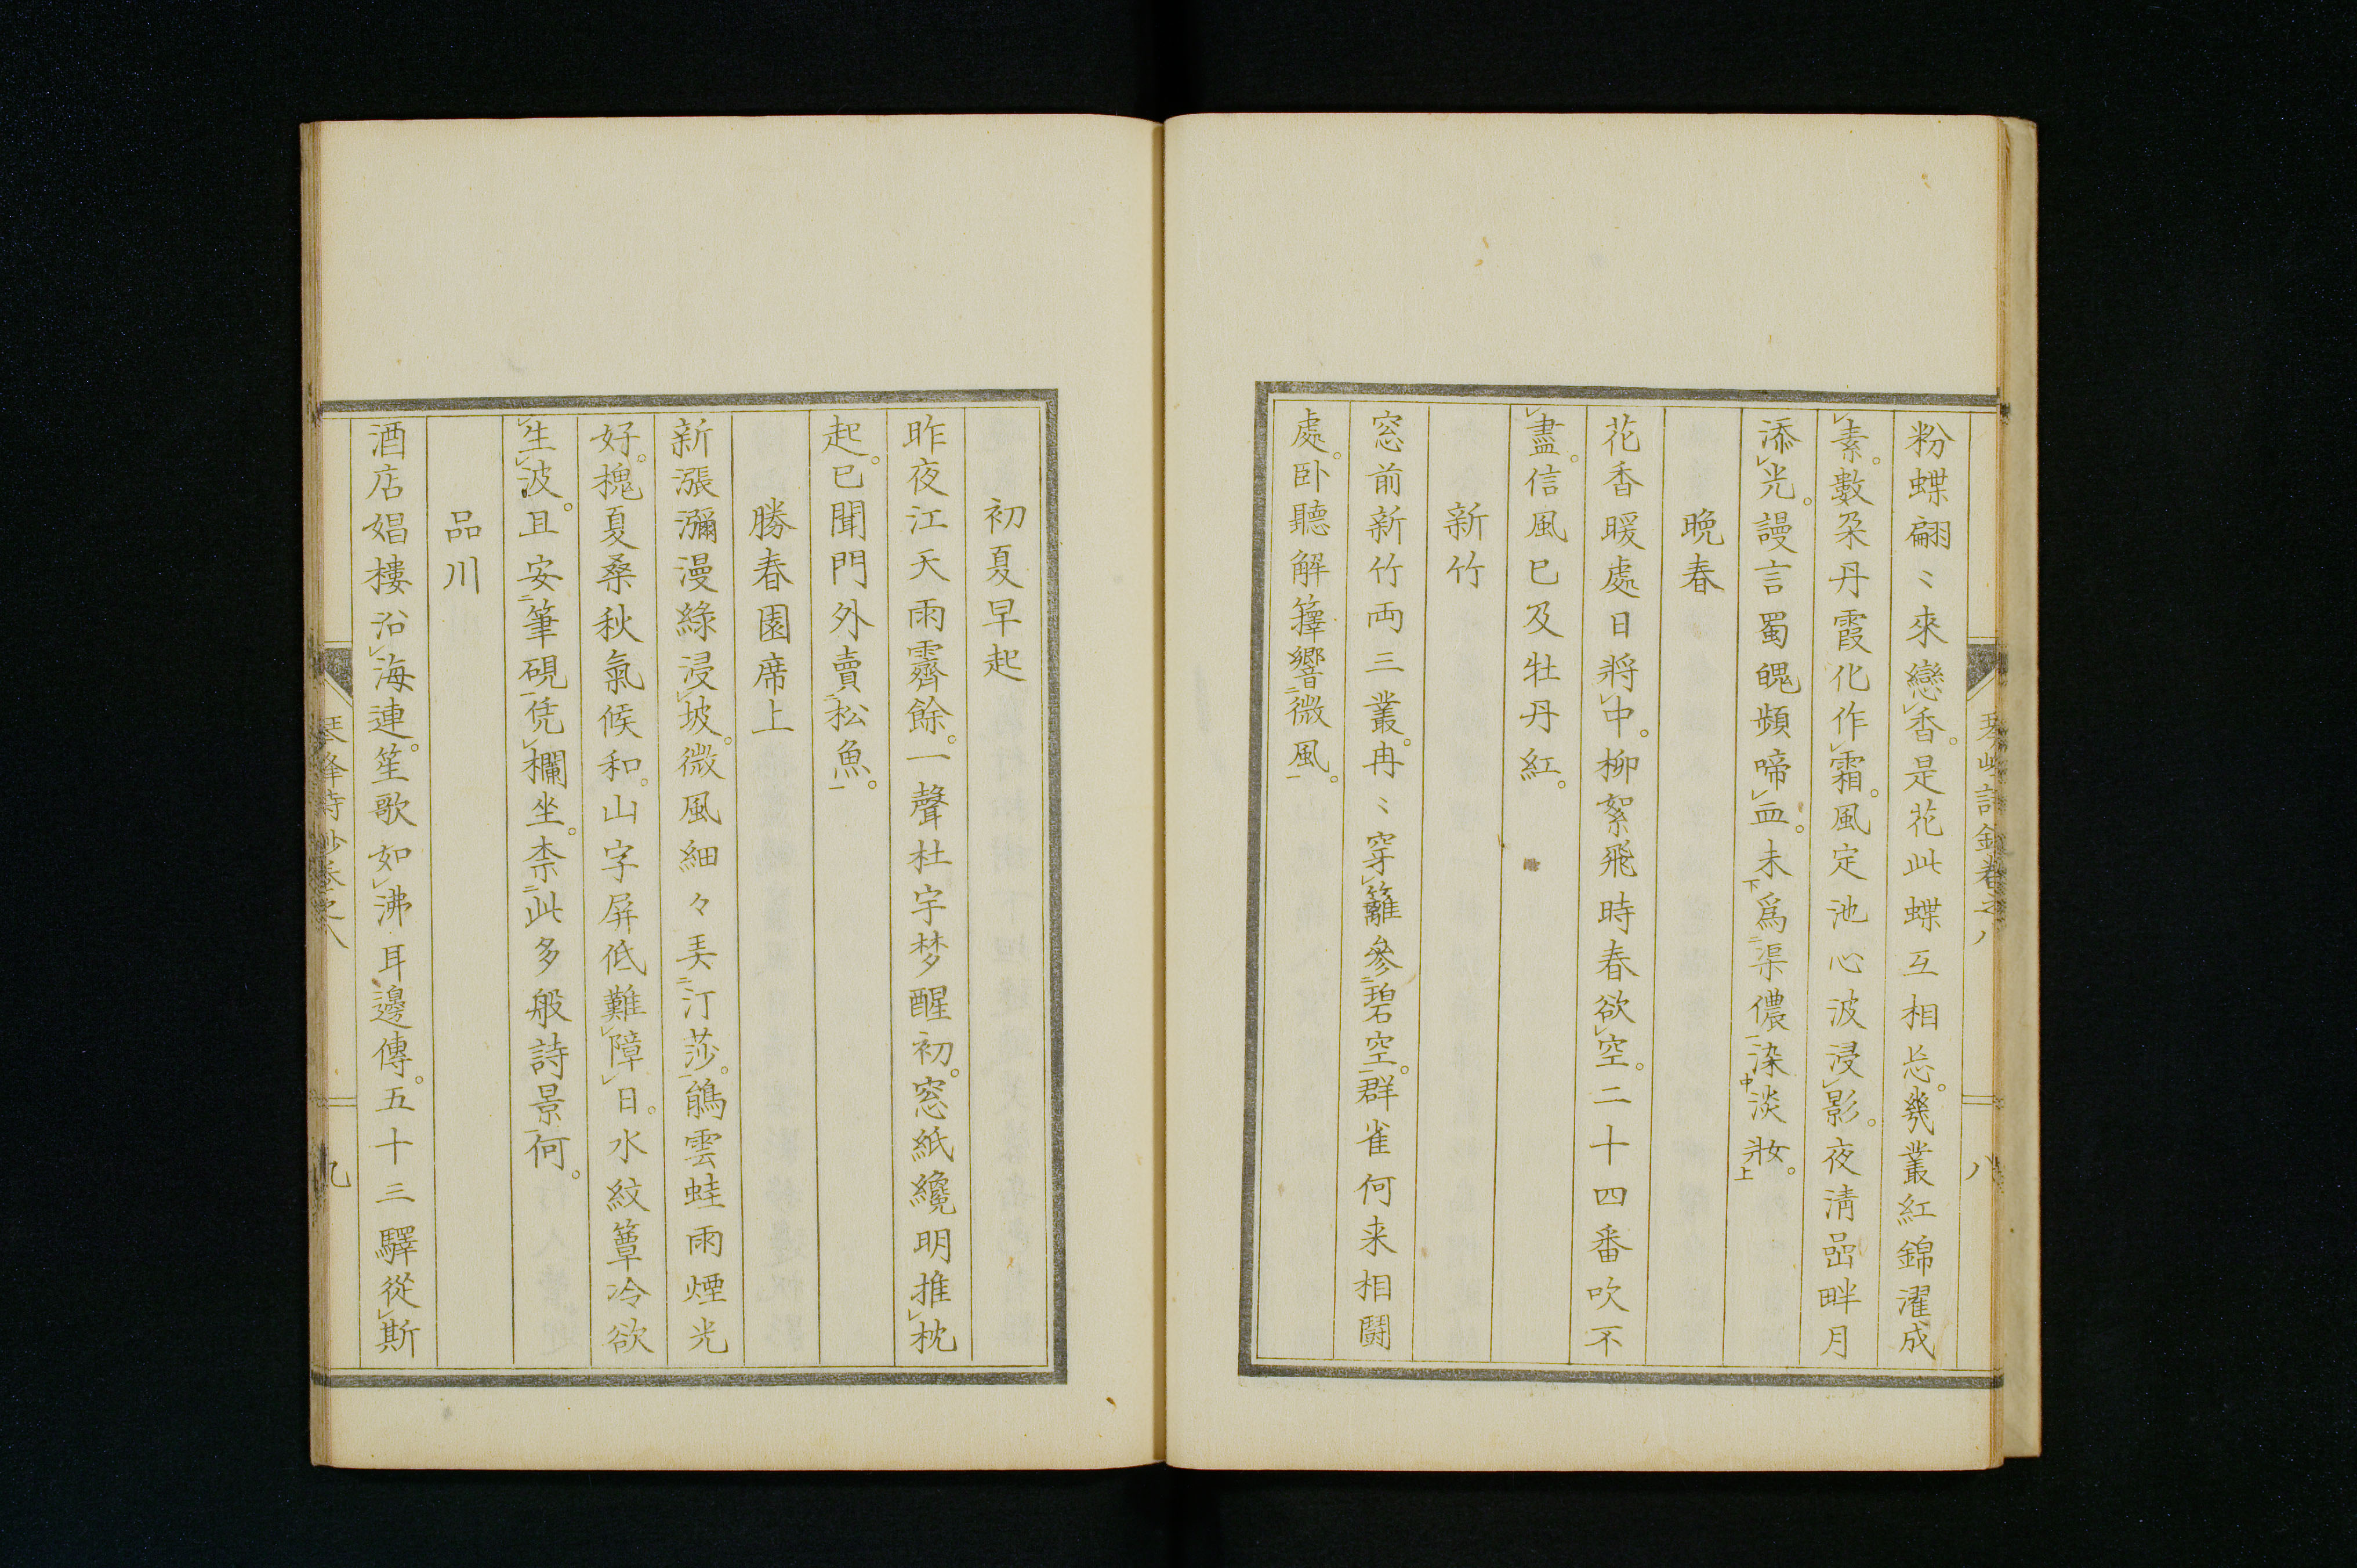 粉蝶翩〻來戀香。是花此蝶互相忘。幾叢紅錦濯成
素。數朶丹霞化作霜。風定池心波浸影。夜淸嵒畔月
添光。謾言蜀魄頻啼血。未爲渠儂染淡妝。
晩春
花香暖處日將中。柳絮飛時春欲空。二十四番吹不
盡。信風已及牡丹紅。
新竹
窓前新竹両三叢。冉〻穿籬參碧空。群雀何来相鬪
處。卧聽解籜響微風。
初夏早起
昨夜江天雨霽餘。一聲杜宇梦醒初。窓紙纔明推枕
起。已聞門外賣松魚。
勝春園席上
新漲瀰漫綠浸坡。微風細々美汀莎。鵃雲蛙雨煙光
好。槐夏桑秋氣候和。山字屏低難障日。水紋簟冷欲
生波。且安筆硯凭欄坐。柰此多般詩景何。
品川
酒店娼樓沿海連。笙歌如沸耳邊傳。五十三驛從斯
琴峰詩鈔卷之八
九